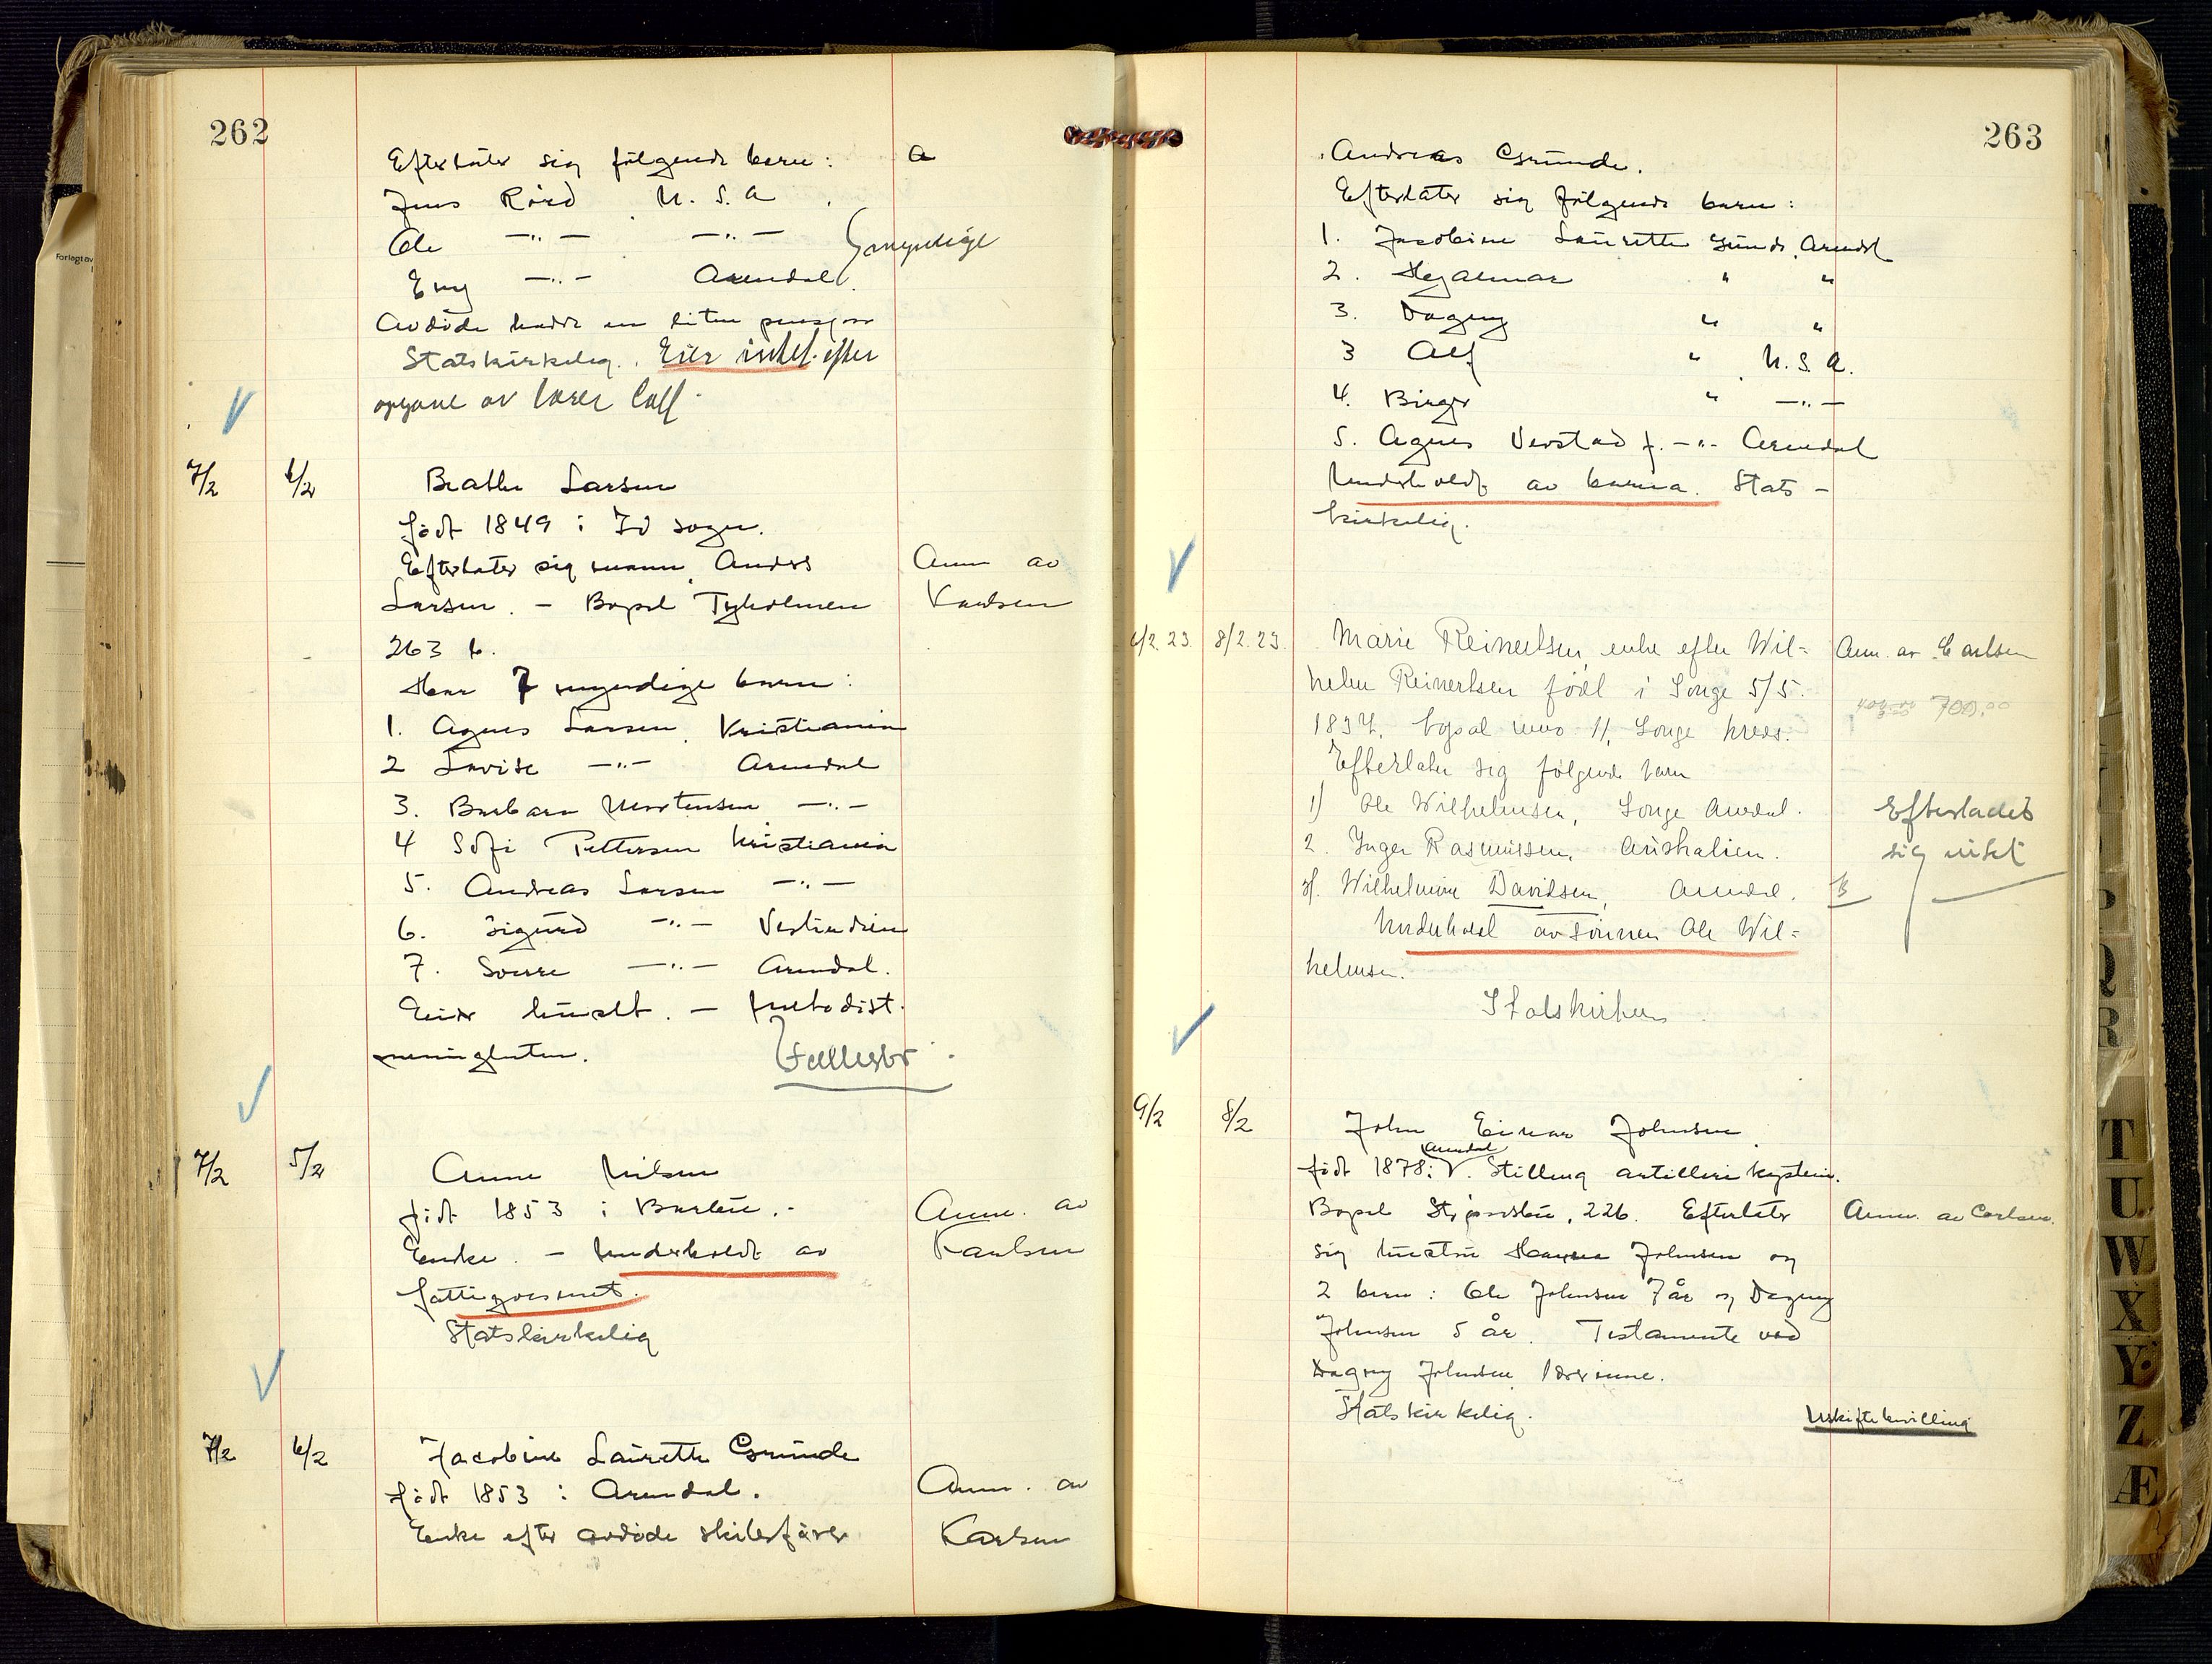 262
Efterlater sig følgende barn:
Jens Röed U. S. A
Ole —"— —"— myndige
Eng —"— Arendal.
Avdöde hadde en liten pensjon
Statskirkelig. Eier intet. efter
opgave av
7/2 6/2 Beathe Larsen
född 1849 i Id sogn.
Efterlater sig mann Anders Anm av
Larsen. – Bopel Tyholmen Karlsen
263 b.
Har 7 myndige barn:
1. Agnes Larsen, Kristiania
2 Lovise —"— Arendal
3. Barbara Mortensen —"—
4 Sofi Pettersen Kristiania
5. Andreas Larsen —"—
6. Sigurd —"— Vestindien
7. Sverre —"— Arendal.
Eier huset. – Metodist.
menigheten.
7/2 5/2 Anne Nilsen
född 1853 i Barbu. - Anm. av
Enke. – Underholdt av Karlsen
fattigvesenet.
Statskirkelig
7/2 6/2 Jacobine Laurette Grunde
född 1853 i Arendal. Anm. av
Enke efter avdöde skibsförer Karlsen
263
Andreas Grunde.
Efterlater sig följgende barn:
1. Jacobine Laurette Grunde, Arendal
2. Hjalmar " "
3. Dagny " "
3 Alf " U. S. A.
4. Birger " —"—
5. Agnes Verstad f. —"— Arendal
Underholdt av barna. Stats-
kirkelig.
6/2. 23. 8/2. 23. Marie Reinertsen, enke efter Wil= Anm. av Carlsen
helm Reinertsen født i Songe 5/5.
1837, bopæl uno 11, Songe kreds. 700.00
Efterlater sig følgende barn
1) Ole Wilhelmsen, Songe Arendal. Efterlades
2. Inger Rasmussen, Australien. sig intet
3). Wilhelmine Davidsen, Arendal.
Underholdt av sönnen Ole Wil=
helmsen.
Statskirken
9/2 8/2 John Einar Johnsen.
Arendal
född 1878 i V. Stilling artilleri kaptein.
Bopel Strömsbu, 226. Efterlater Anm. av Carlsen.
sig hustru Hanna Johnsen og
2 barn: Ole Johnsen 7 år og Dagny
Johnsen 5 år. Testamente ved
Dagny Johnsen lærerinne.
Statskirkelig.
Uskiftebevilling
T
U
W
X
Y
Z
Æ